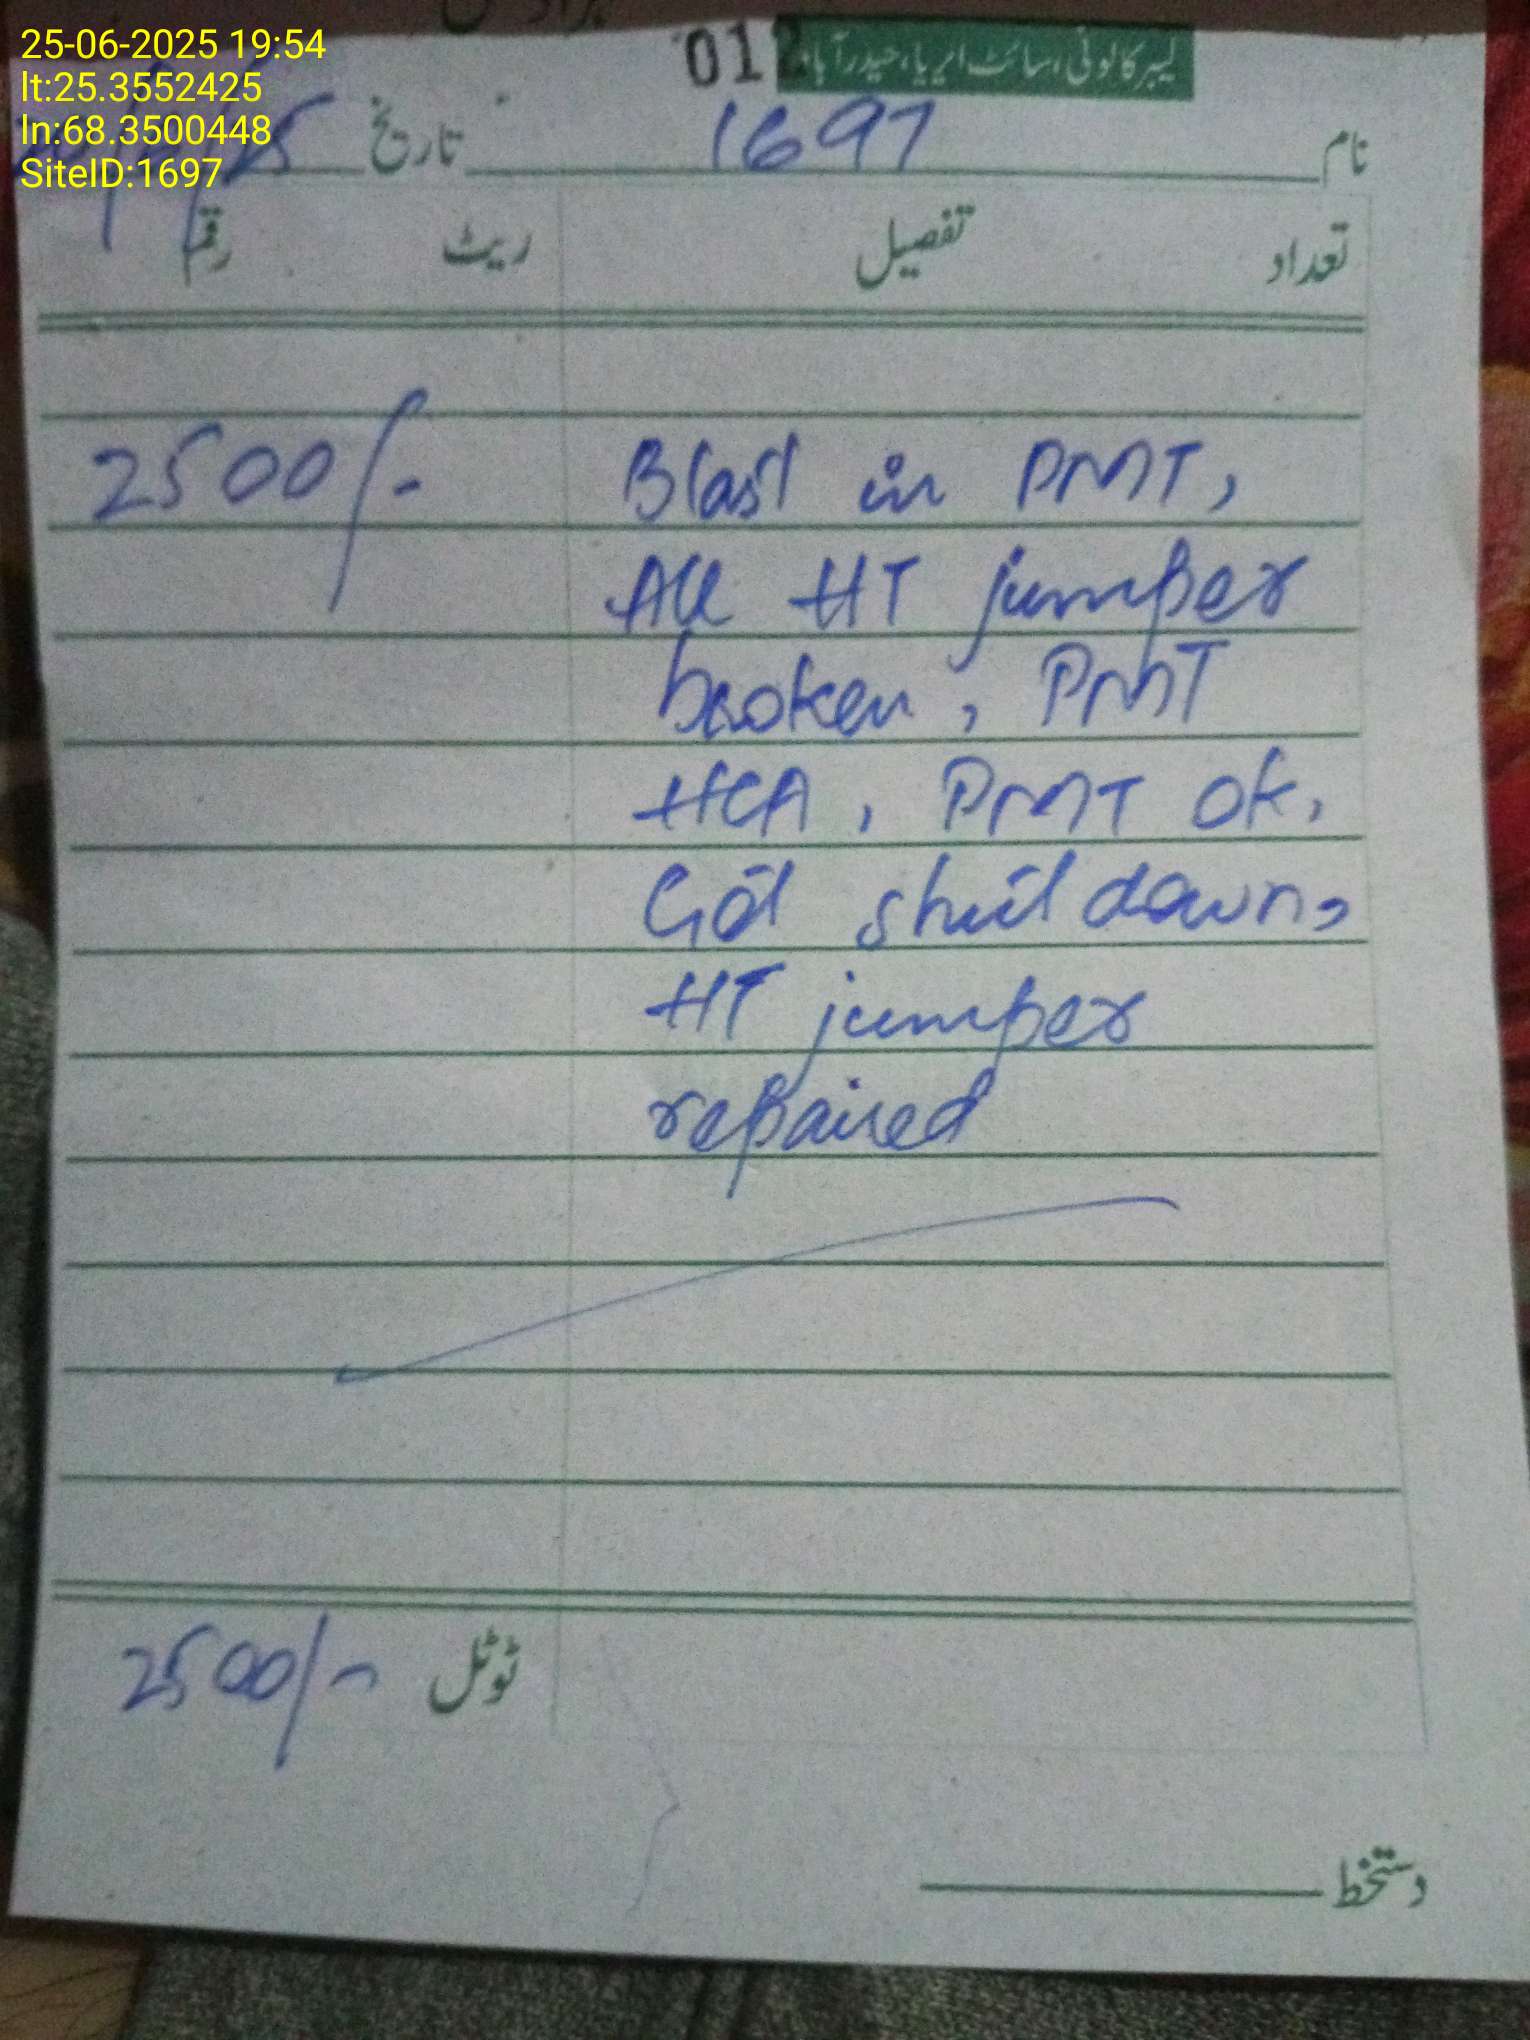 25-06-2025 19:54
lt:25.3552425
ln:68.3500448
SiteID:1697
012
لیبر کالونی، سائٹ ایریا، حیدرآباد
نام 1697 تاریخ
تعداد تفصیل ریٹ رقم
Blast in PMT, 2500/-
All HT jumper
broken, PMT
HCA, PMT ok,
Got shut down,
HT jumper
repaired
ٹوٹل 2500/-
دستخط